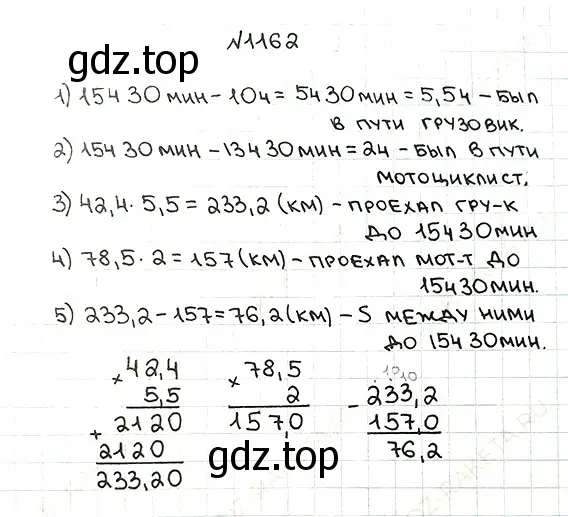 №1162
gdz.top
1) 15ч 30 мин - 10ч = 5ч 30 мин = 5,5ч - был
в пути грузовик.
2) 15ч 30 мин - 13ч 30 мин = 2ч - был в пути
мотоциклист.
3) 42,4 · 5,5 = 233,2 (км) - проехал гру-к
до 15ч 30 мин
4) 78,5 · 2 = 157 (км) - проехал мот-т до
15ч 30 мин.
5) 233,2 - 157 = 76,2 (км) - S между ними
до 15ч 30 мин.
× 42,4 × 78,5 10 10
5,5 2 - 233,2
+ 2120 157,0 157,0
2120 76,2
233,20
gdz.top